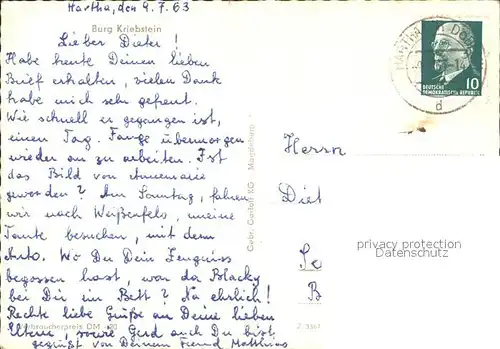 Hartha, den 9.7.63
Burg Kriebstein
Lieber Dieter!
Habe heute Deinen lieben
Brief erhalten, vielen Dank
habe mich sehr gefreut.
Wie schnell es gegangen ist,
einen Tag. Fange übermorgen
wieder an zu arbeiten. Ist
das Bild von Annemarie
geworden? Am Sonntag, fahren
wir nach Weißenfels, meine
Tante besuchen, mit dem
Auto. Wo Du Dein Zeugniss
begossen hast, war da Blacky
bei Dir im Bett? Na ehrlich!
Rechte liebe Grüße an Deine lieben
Eltern, sowie Gerd auch Du bist
gegrüßt von Deinem Freund Matthias
Verbraucherpreis DM
Gebr. Garloff KG Magdeburg
HARTHA
d
10
DEUTSCHE
DEMOKRATISCHE REPUBLIK
Herrn
Diet
privacy protection
Datenschutz
B